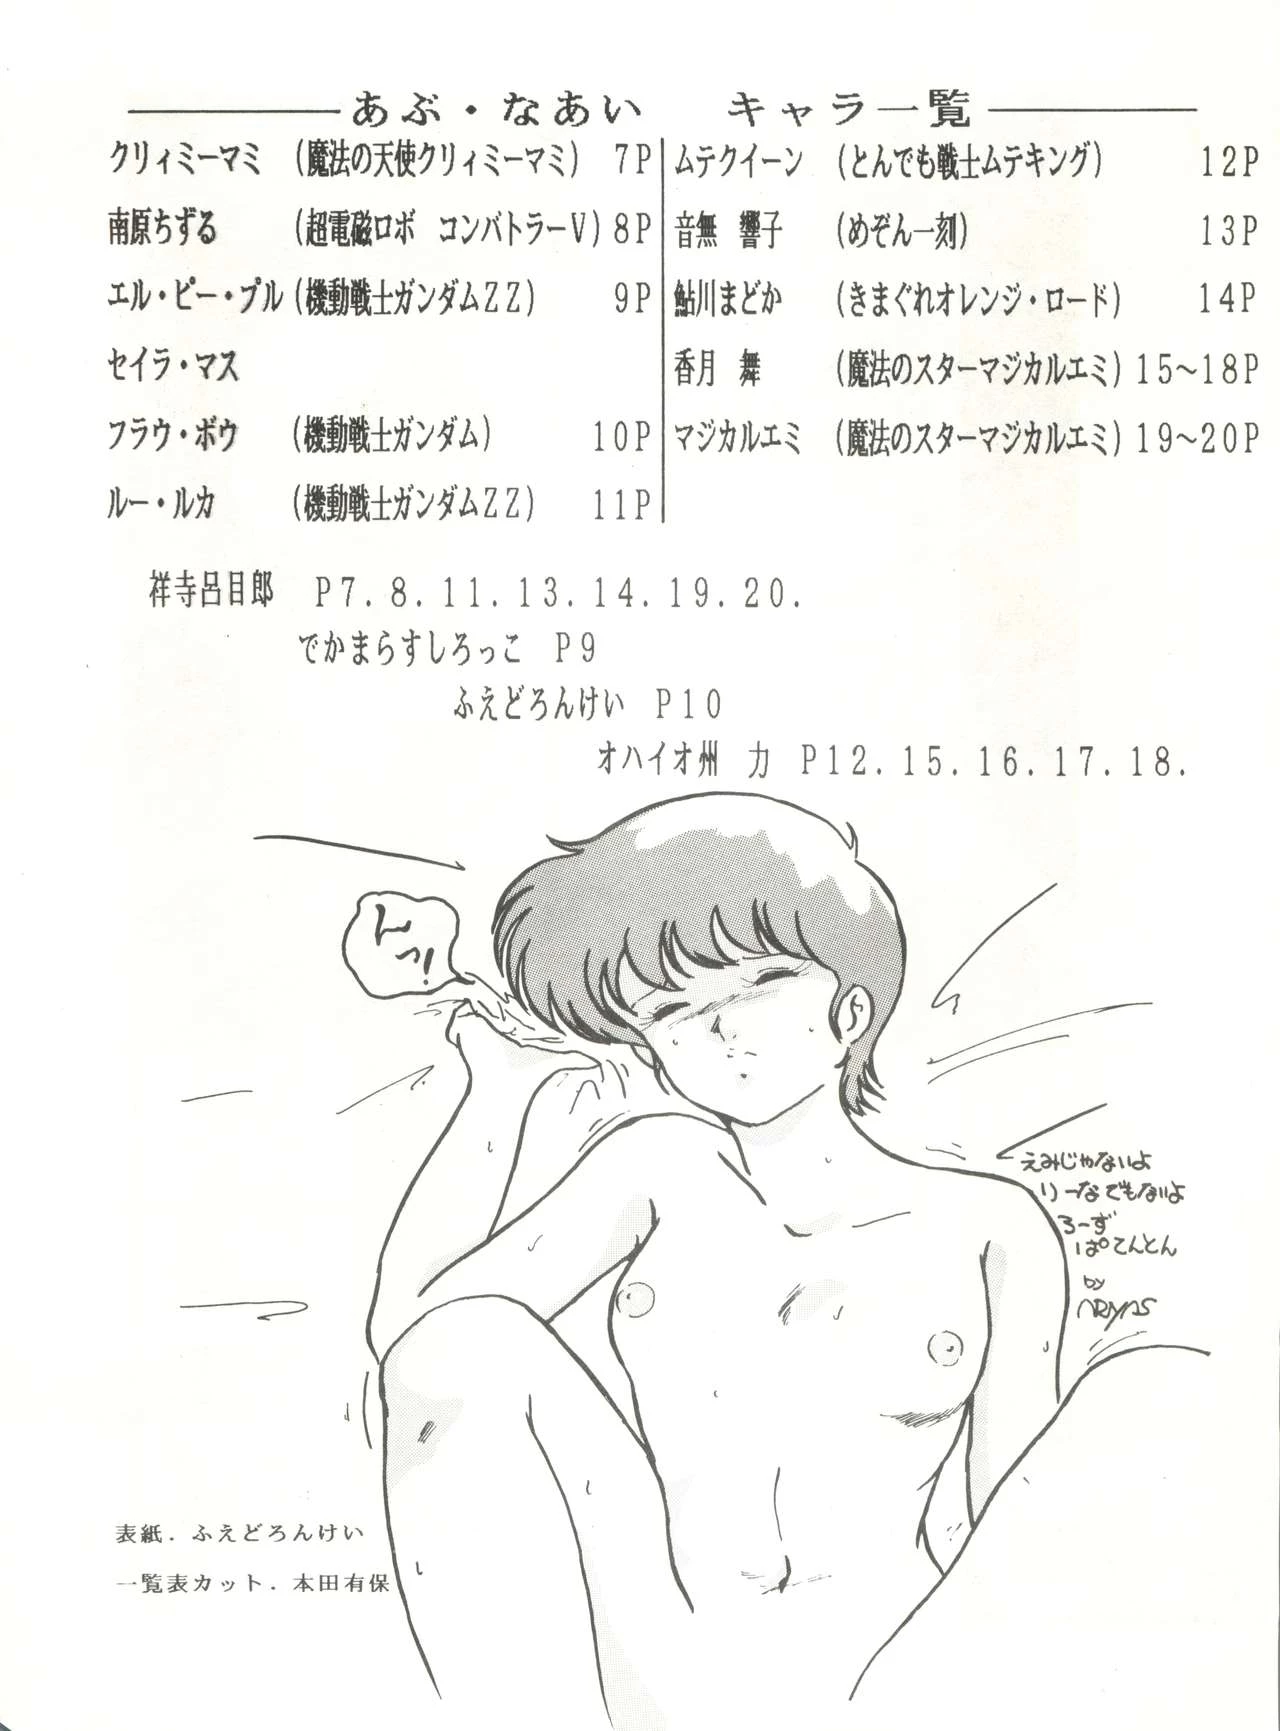 あぶ・なあい　キャラ一覧
クリィミーマミ （魔法の天使クリィミーマミ） 7P
南原ちずる （超電磁ロボ コンバトラーV） 8P
エル・ピー・プル （機動戦士ガンダムZZ） 9P
セイラ・マス
フラウ・ボウ （機動戦士ガンダム） 10P
ルー・ルカ （機動戦士ガンダムZZ） 11P
ムテクイーン （とんでも戦士ムテキング） 12P
音無 響子 （めぞん一刻） 13P
鮎川まどか （きまぐれオレンジ・ロード） 14P
香月 舞 （魔法のスターマジカルエミ） 15～18P
マジカルエミ （魔法のスターマジカルエミ） 19～20P
祥寺呂目郎 P7.8.11.13.14.19.20.
でかまらすしろっこ P9
ふえどろんけい P10
オハイオ州 力 P12.15.16.17.18.
んっ!
えみじゃないよ
りーなでもないよ
ろーず
ぱてんとん
by
ARIYAS
表紙．ふえどろんけい
一覧表カット．本田有保